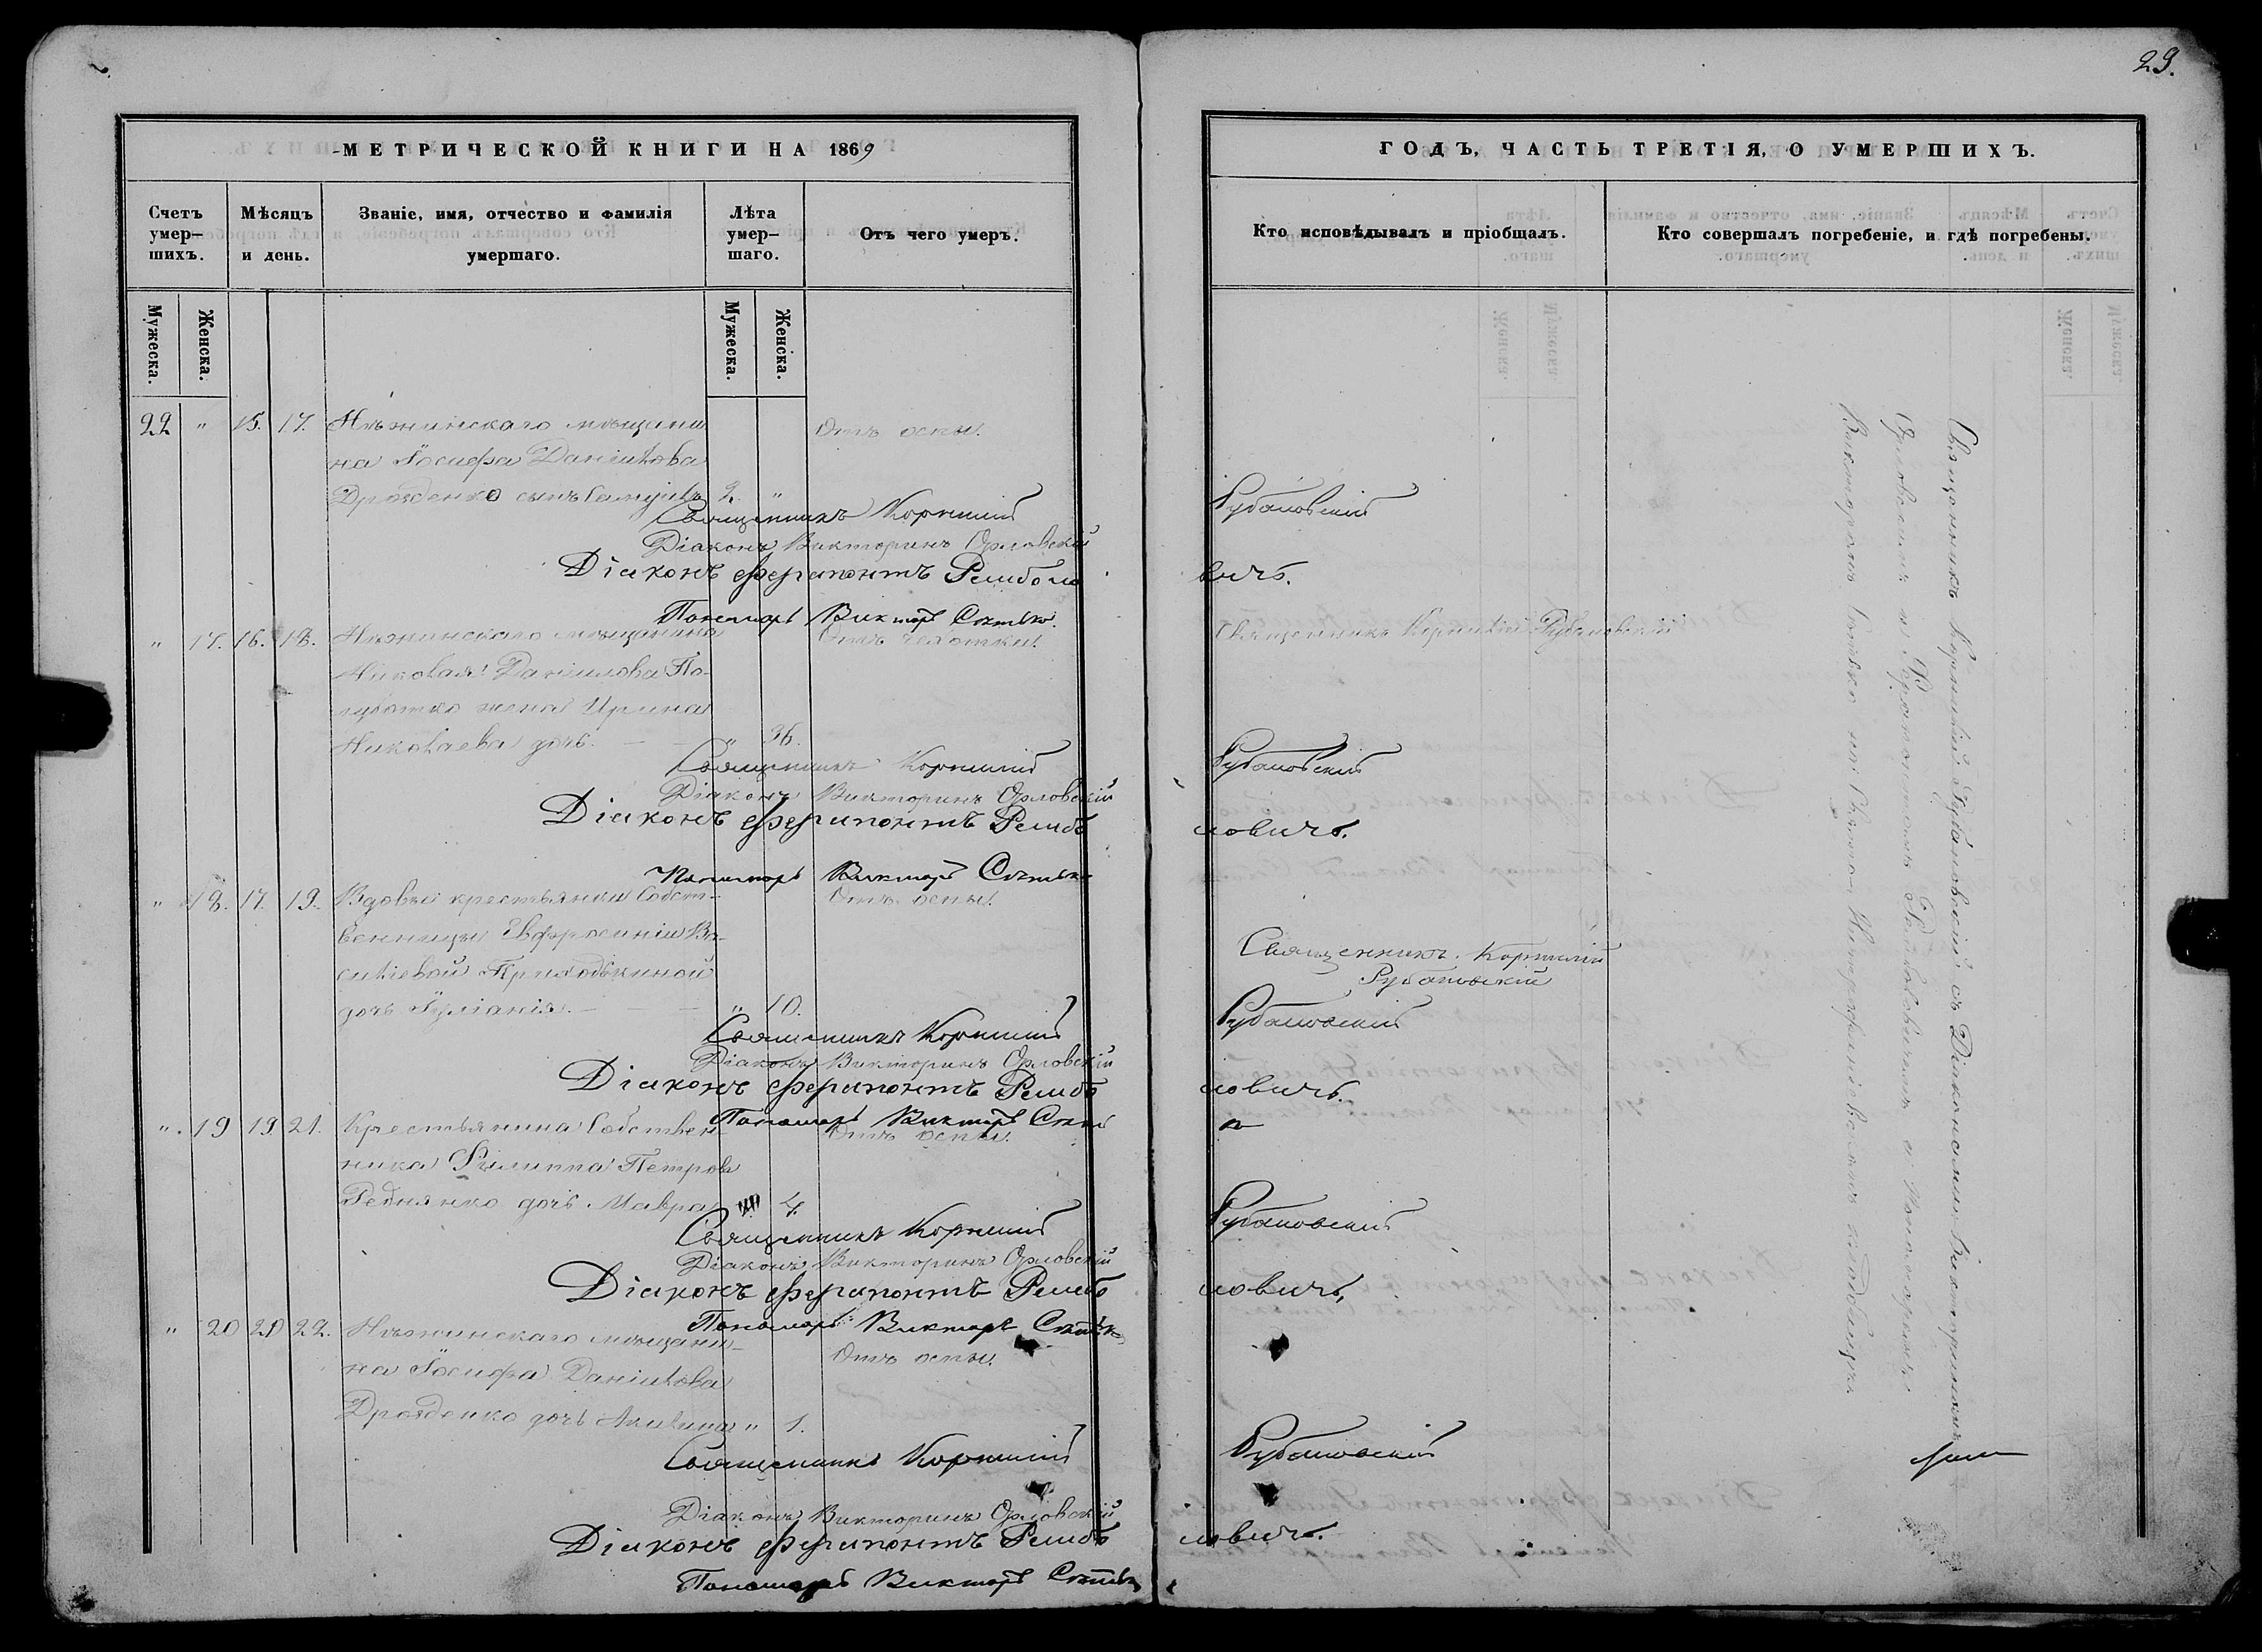 29.
МЕТРИЧЕСКОЙ КНИГИ НА 1869
ГОДЪ, ЧАСТЬ ТРЕТІЯ, О УМЕРШИХЪ.
Счетъ умер–шихъ.
Мѣсяцъ и день.
Званіе, имя, отчество и фамилія умершаго.
Лѣта умер–шаго.
Отъ чего умеръ.
Кто исповѣдывалъ и пріобщалъ.
Кто совершалъ погребеніе, и гдѣ погребены.
Мужеска.
Женска.
Мужеска.
Женска.
22 " 15. 17. Нѣжинскаго мѣщани
на Іосифа Даніилова
Дрозденко сынъ Самуилъ 2. "
Отъ оспы.
Священникъ Корнилій Рубановскій
Діаконъ Викторинъ Орловскій
Діаконъ Ферапонтъ Рембловичъ.
Пономарь Викторъ
" 17. 16. 18. Нѣжинскаго мѣщанина
Николая Даніилова По-
жена Ирина
Николаева дочь. " 36.
Отъ чахотки.
Священникъ Корнилій Рубановскій
Священникъ Корнилій Рубановскій
Діаконъ Викторинъ Орловскій
Діаконъ Ферапонтъ Рембловичъ.
Пономарь Викторъ
" 18. 17. 19. Вдовы крестьянки Собст-
венницы Евфросиніи Ва-
силіевой Приходькиной
дочь Іуліанія. " 10.
Отъ оспы.
Священникъ Корнилій
Рубановскій
Священникъ Корнилій Рубановскій
Діаконъ Викторинъ Орловскій
Діаконъ Ферапонтъ Рембловичъ.
Пономарь Викторъ
" 19 19 21. Крестьянина Собствен-
ника Филиппа Петрова
дочь Мавра 4.
Отъ оспы.
Священникъ Корнилій Рубановскій
Діаконъ Викторинъ Орловскій
Діаконъ Ферапонтъ Рембловичъ,
Пономарь Викторъ
" 20 20 22. Нѣжинскаго мѣщани-
на Іосифа Даніилова
Дрозденко дочь Акилина " 1.
Отъ оспы.
Священникъ Корнилій Рубановскій
Діаконъ Викторинъ Орловскій
Діаконъ Ферапонтъ Рембловичъ.
Пономарь Викторъ
Священникъ Корнилій Рубановскій съ Діаконами Викториномъ
Орловскимъ и Ферапонтомъ Рембловичемъ и Пономаремъ
Викторомъ на кладбищѣ